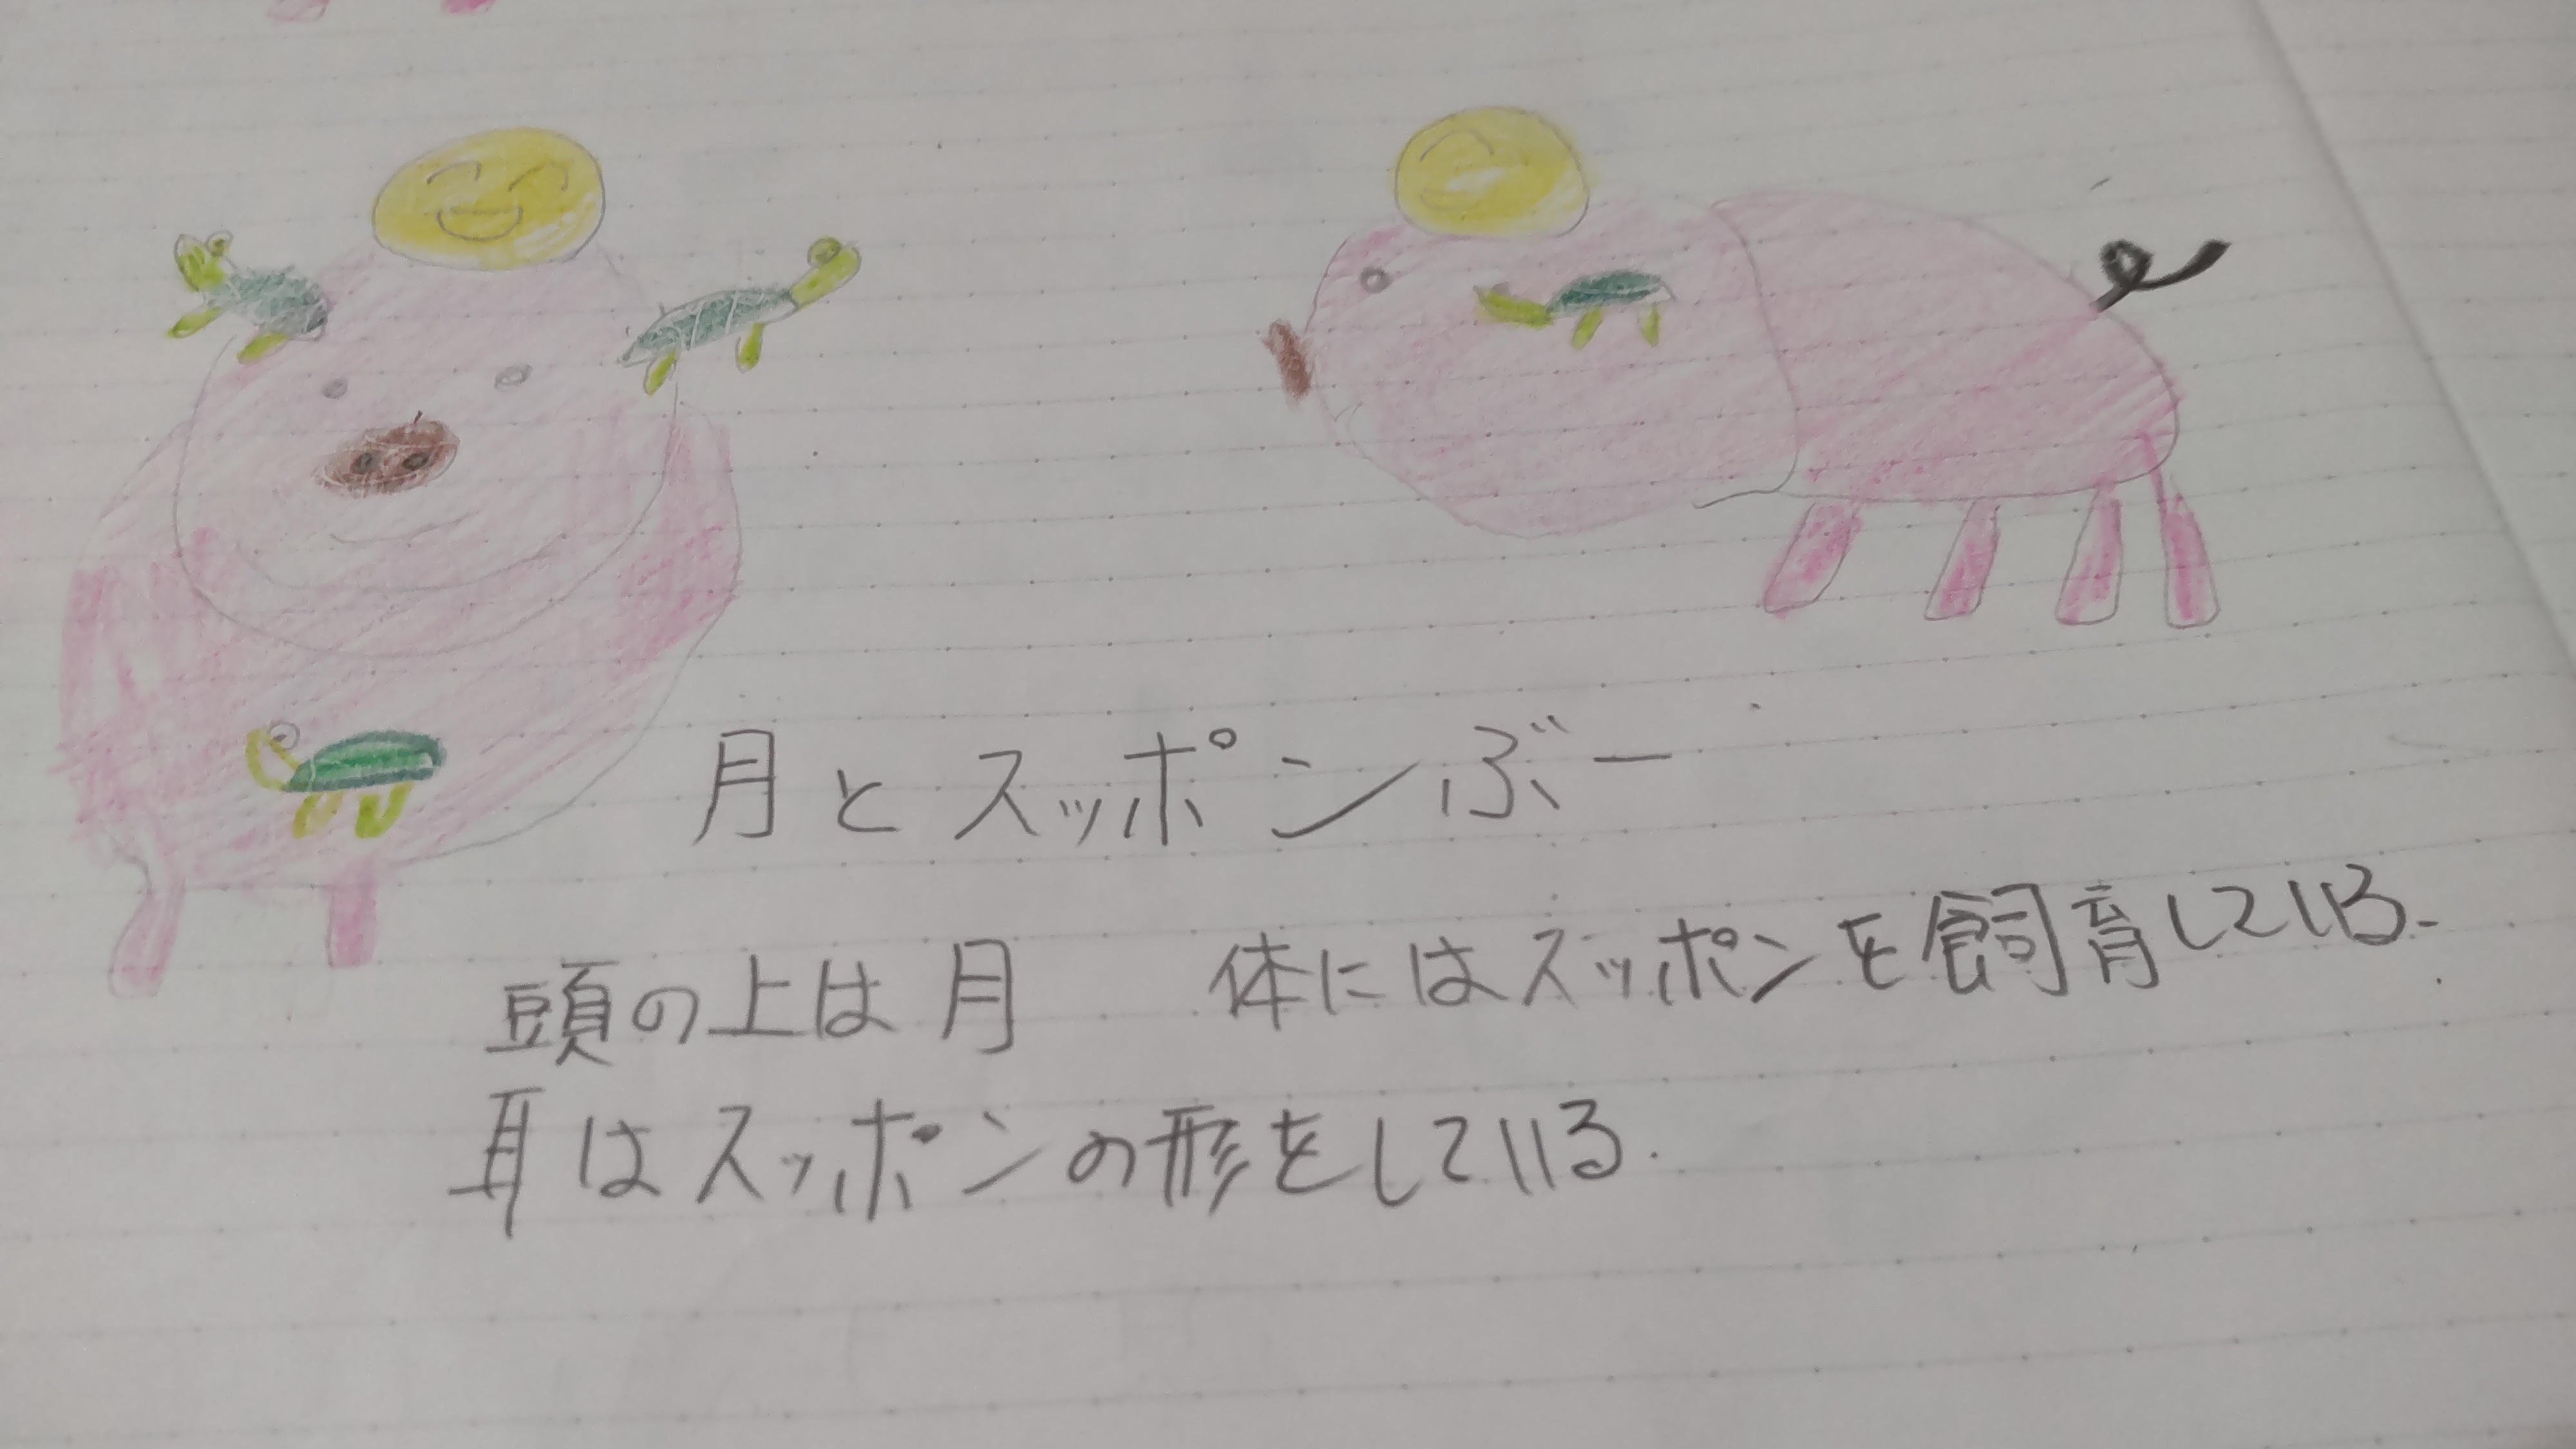 月とスッポンぶー
頭の上は月　体にはスッポンを飼育している.
耳はスッポンの形をしている.